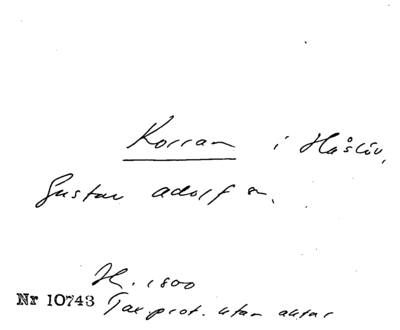 Korran i Håslöv,
Gustav Adolf sn.
H. 1800
Nr 10743 Tax prot. utan antal